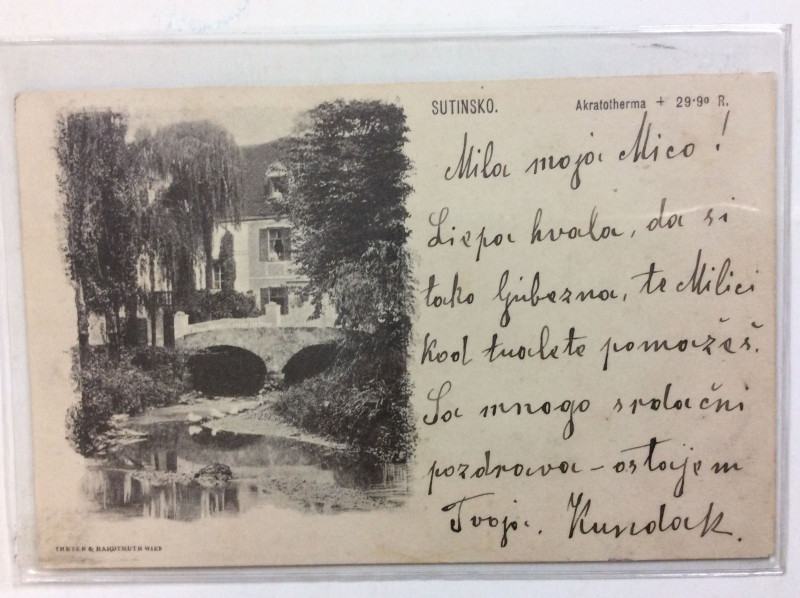 SUTINSKO.
Akratotherma + 29·9º R.
Mila moja Mico!
Liepa hvala, da si
tako ljubezna, te Milici
kod tualete pomažeš.
Sa mnogo srdačni
pozdrava - ostajem
Tvoja. Kundak.